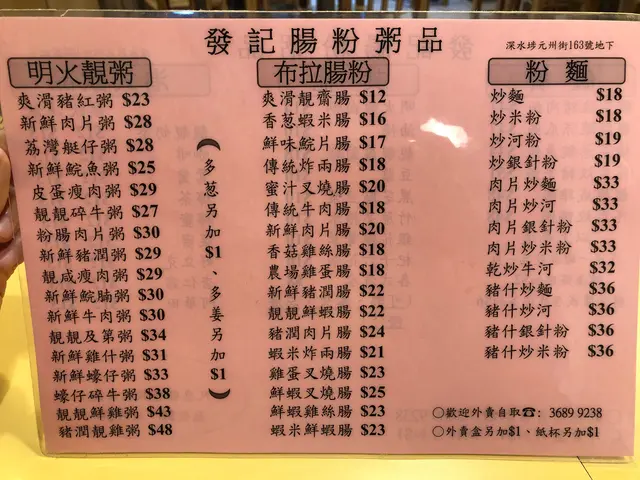 發記腸粉粥品
深水埗元州街163號地下
明火靚粥
爽滑豬紅粥 $23
新鮮肉片粥 $28
荔灣艇仔粥 $28
新鮮鯇魚粥 $25
皮蛋瘦肉粥 $29
靚靚碎牛粥 $27
粉腸肉片粥 $30
新鮮豬潤粥 $29
靚咸瘦肉粥 $29
新鮮鯇腩粥 $30
新鮮牛肉粥 $30
靚靚及第粥 $34
新鮮雞什粥 $31
新鮮蠔仔粥 $33
蠔仔碎牛粥 $38
靚靚鮮雞粥 $43
豬潤靚雞粥 $48
（多葱另加$1、多姜另加$1）
布拉腸粉
爽滑靚齋腸 $12
香葱蝦米腸 $16
鮮味鯇片腸 $17
傳統炸兩腸 $18
蜜汁叉燒腸 $20
傳統牛肉腸 $18
新鮮肉片腸 $20
香菇雞絲腸 $18
農場雞蛋腸 $18
新鮮豬潤腸 $22
靚靚鮮蝦腸 $22
豬潤肉片腸 $24
蝦米炸兩腸 $21
雞蛋叉燒腸 $23
鮮蝦叉燒腸 $25
鮮蝦雞絲腸 $23
蝦米鮮蝦腸 $23
粉麵
炒麵 $18
炒米粉 $18
炒河粉 $19
炒銀針粉 $19
肉片炒麵 $33
肉片炒河 $33
肉片銀針粉 $33
肉片炒米粉 $33
乾炒牛河 $32
豬什炒麵 $36
豬什炒河 $36
豬什銀針粉 $36
豬什炒米粉 $36
○歡迎外賣自取☎：3689 9238
○外賣盒另加$1、紙杯另加$1